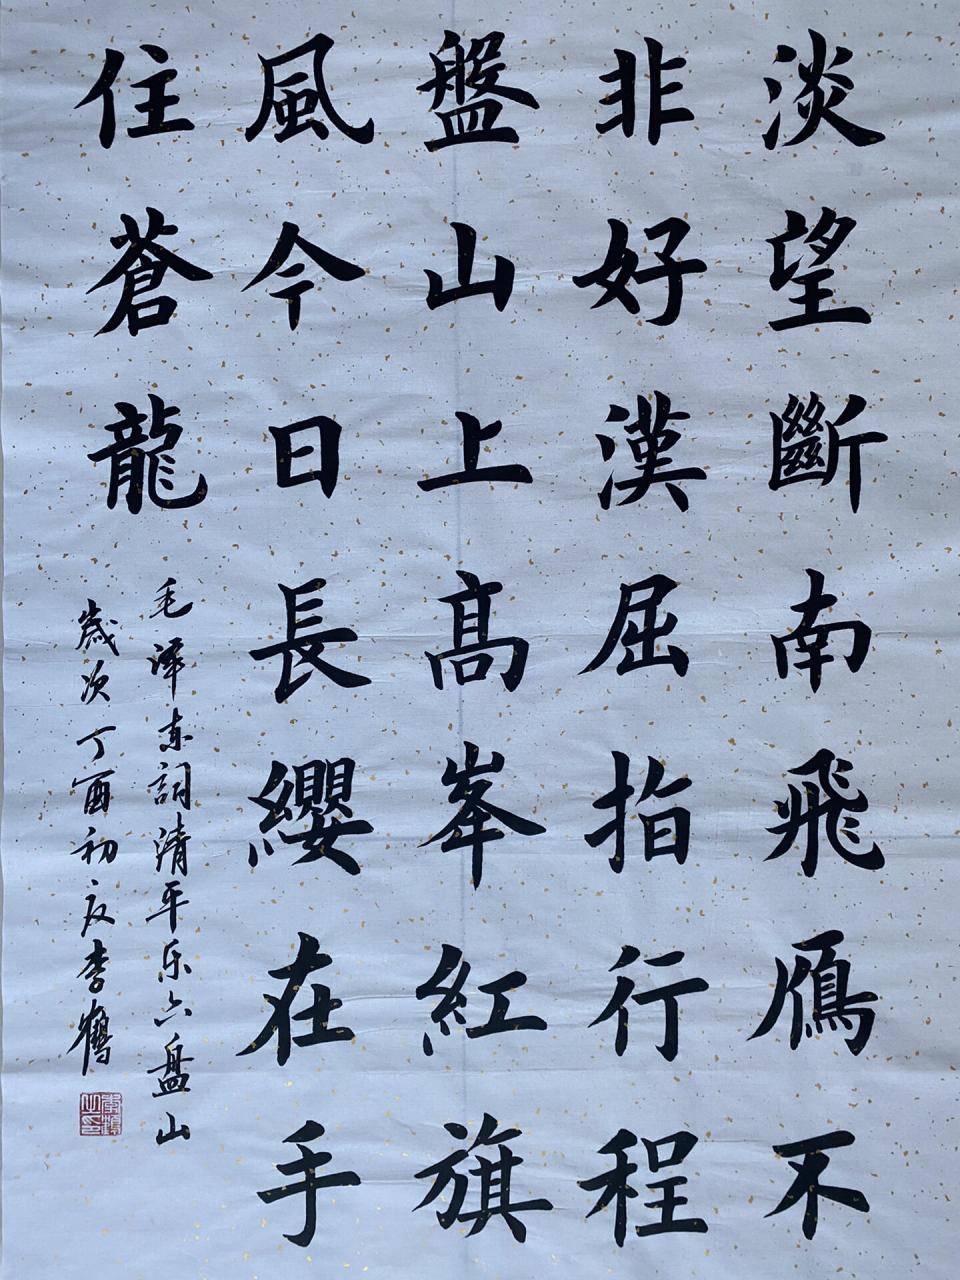 淡望斷南飛鴈不
非好漢屈指行程
盤山上髙峯紅旗
風今日長纓在手
住蒼龍
毛泽东詞清平乐六盘山
歲次丁酉初夏李鶴
李鶴之印